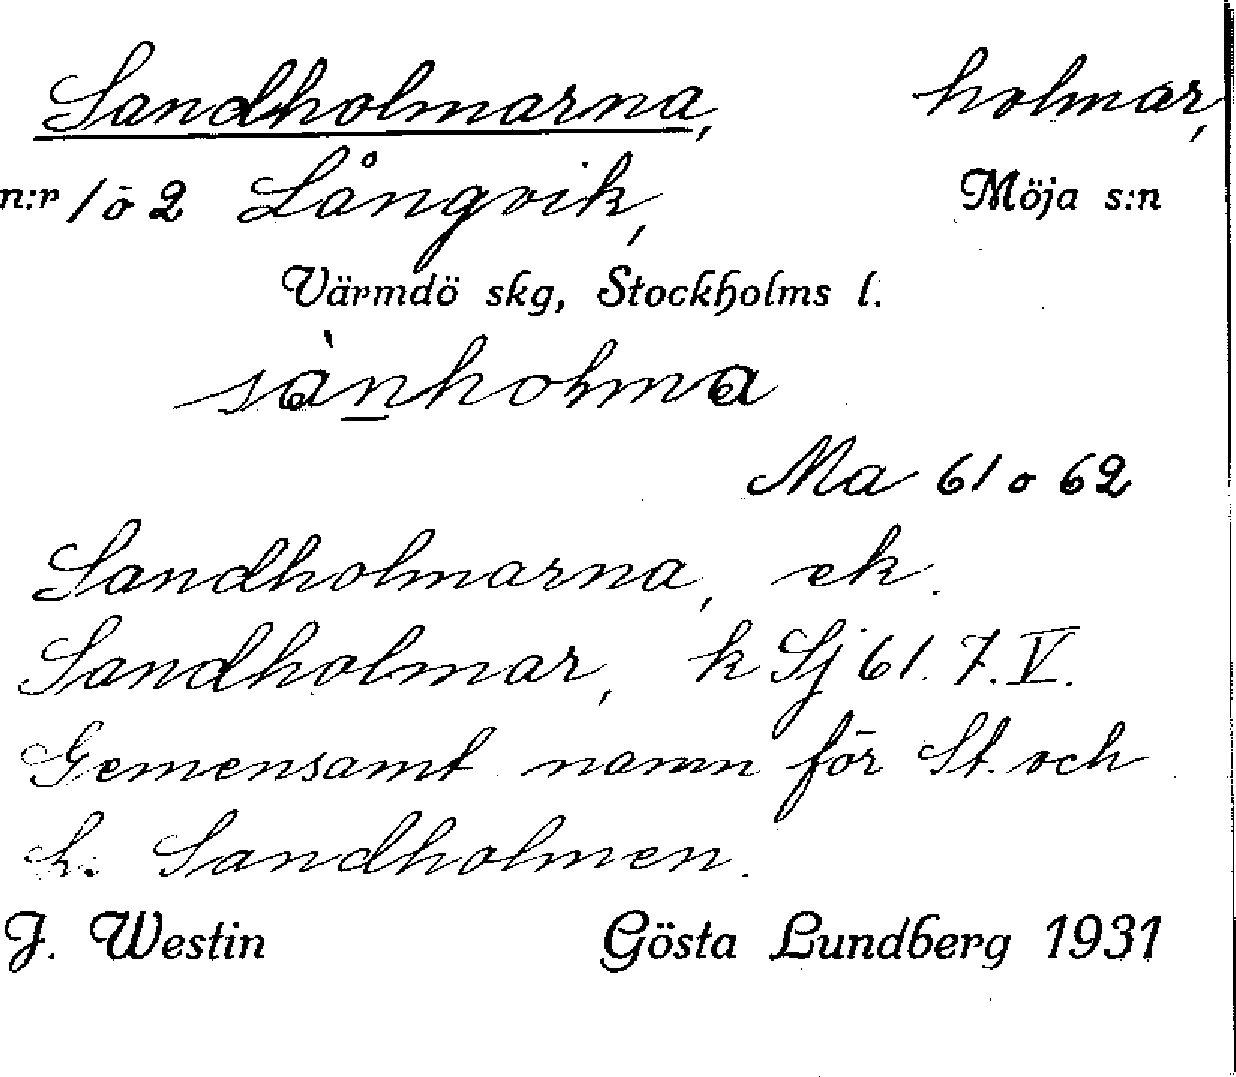 Sandholmarna, holmar,
n:r 1 o 2 Långvik, Möja s:n
Värmdö skg, Stockholms l.
sànholma
Ma 61 o 62
Sandholmarna, ek.
Sandholmar, k Sj 61. 7. V.
Gemensamt namn för St. och
L: Sandholmen.
J. Westin Gösta Lundberg 1931